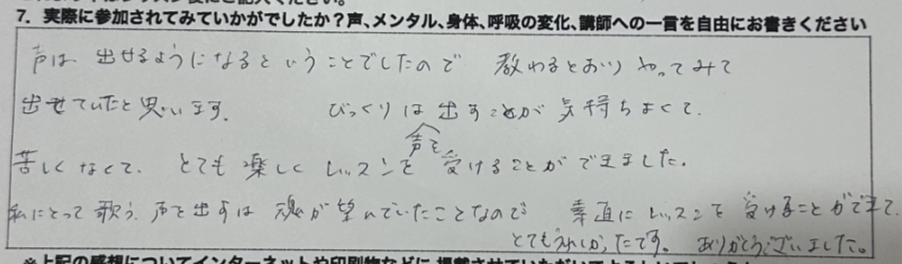 7. 実際に参加されてみていかがでしたか？声、メンタル、身体、呼吸の変化、講師への一言を自由にお書きください
声は 出せるようになるということでしたので 教わるとおりやってみて
出せていたと思います。 びっくりは 出すことが 気持ちよくて、
声を
苦しくなくて、とても楽しくレッスンを受けることができました。
私にとって歌う、声を出すは 魂が望んでいたことなので 素直にレッスンを受けることができて、
とてもうれしかったです。ありがとうございました。
※上記の感想についてインターネットや印刷物などに掲載させていただいて